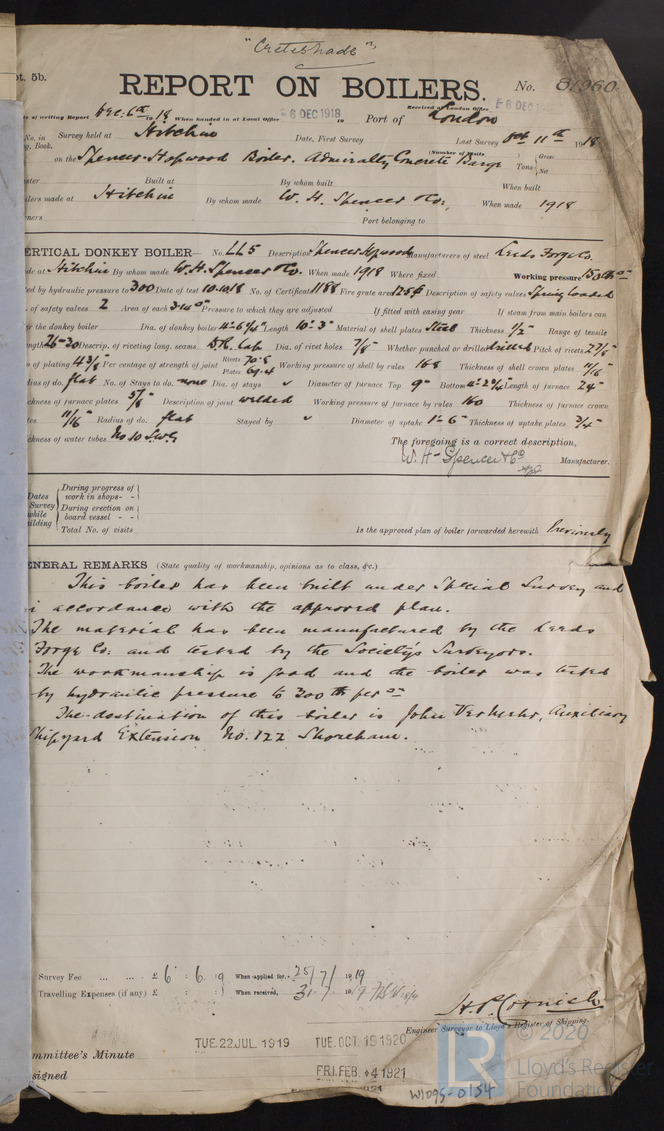 "Creteshade"
pt. 5b.
REPORT ON BOILERS. No. 81960
Received at London Office
of writing Report Dec: 6th 1918 When handed in at Local Office 6 DEC 1918 19 Port of London 6 DEC
No. in Survey held at Hitchin Date, First Survey Last Survey Oct 11th 1918
Book. (Number of Visits
on the Spencer-Hopwood Boiler. Admiralty Concrete Barge Tons Gross Net
ster Built at By whom built When built
ilers made at Hitchin By whom made W. H. Spencer & Co. When made 1918
ners Port belonging to
ERTICAL DONKEY BOILER— No. LL5 Description Spencer Hopwood Manufacturers of steel Leeds Forge Co.
de at Hitchin By whom made W. H. Spencer & Co. When made 1918 Where fixed Working pressure 150 lbs
ed by hydraulic pressure to 300 Date of test 10.10.18 No. of Certificate 1188 Fire grate area 12.56 Description of safety valves Spring loaded
. of safety valves 2 Area of each 3.14 Pressure to which they are adjusted If fitted with easing gear If steam from main boilers can
er the donkey boiler Dia. of donkey boiler Length 10'-3" Material of shell plates Steel Thickness 1/2" Range of tensile
ength 26-30 Descrip. of riveting long. seams D.R. Lap Dia. of rivet holes 7/8" Whether punched or drilled drilled Pitch of rivets 2 7/8"
of plating 4 3/8 Per centage of strength of joint Rivets 70.8 Plates 69.4 Working pressure of shell by rules 168 Thickness of shell crown plates 11/16"
dius of do. flat No. of Stays to do. none Dia. of stays Diameter of furnace Top 9" Bottom 4'-2 3/4" Length of furnace 24"
ickness of furnace plates 5/8" Description of joint welded Working pressure of furnace by rules 160 Thickness of furnace crown
tes 11/16" Radius of do. flat Stayed by Diameter of uptake 1'-6" Thickness of uptake plates 3/4"
ickness of water tubes No 10 S.W.G. The foregoing is a correct description,
W. H. Spencer & Co Manufacturer.
Dates Survey while ilding
During progress of work in shops - -
During erection on board vessel - -
Total No. of visits Is the approved plan of boiler forwarded herewith Previously
ENERAL REMARKS (State quality of workmanship, opinions as to class, &c.)
This boiler has been built under Special Survey and
i accordance with the approved plan.
The material has been manufactured by the Leeds
Forge Co: and tested by the Society's Surveyors.
The workmanship is good and the boiler was tested
by hydraulic pressure to 300 lb per
The destination of this boiler is John Auxiliary
Shipyard Extension No. 122 Shoreham.
Survey Fee ... ... £ 6 : 6 : 9 When applied for, 25/7/1919
Travelling Expenses (if any) £ : : When received, 31.7.19
H. P. Cornish
Engineer Surveyor to Lloyd's Register of Shipping.
mmittee's Minute TUE. 22 JUL 1919 TUE. OCT. 19 1920
signed FRI. FEB. 4 1921
© 2020
Lloyd's Register
Foundation
W1095-0154